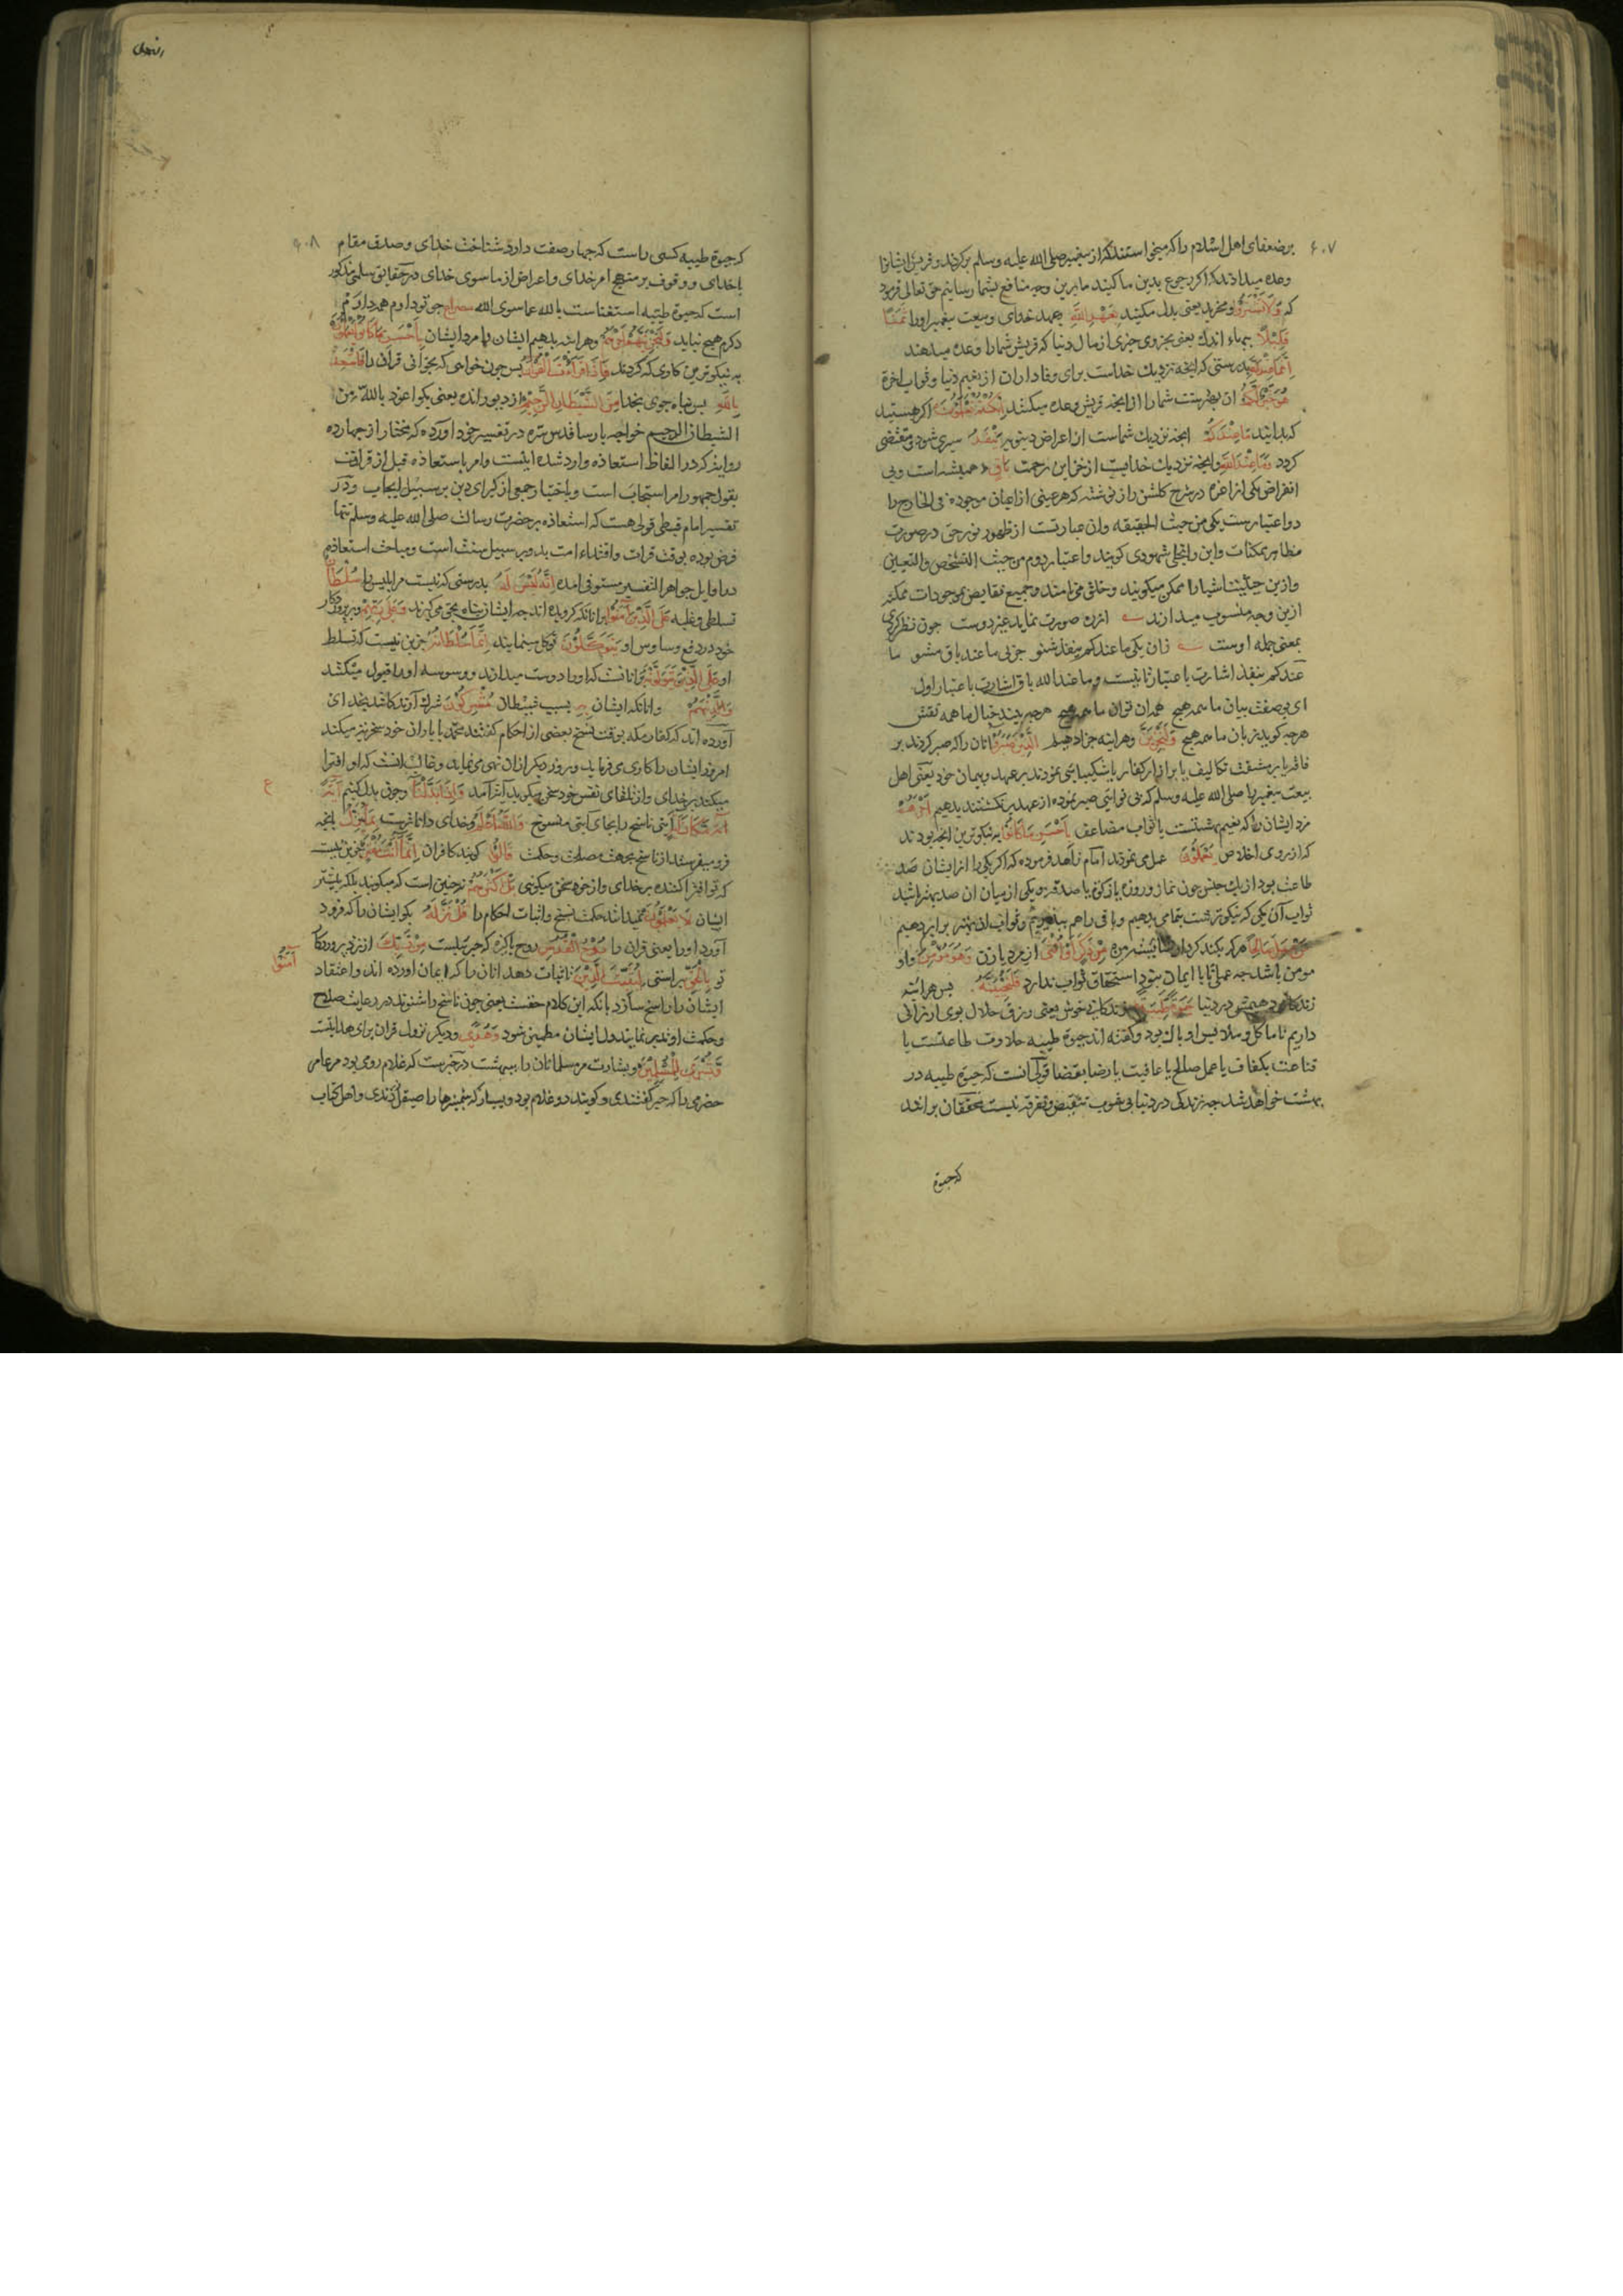 ۶۰۷
بر ضعفای اهل اسلام را که میخواستند که از پیغمبر صلی الله علیه وسلم برکردند و قریش ایشانرا
وعده میدادند که اکر رجوع بدین ما کنید ما بدین وجه منافع بشما رسانیم حق تعالی فرمود
که وَلَا تَشْتَرُوا و مخرید یعنی بدل مکنید بِعَهْدِ اللَّهِ بعهد خدای وبیعت پیغمبر او را ثَمَنًا
قَلِيلًا بهاء اندک یعنی بجزوی چیزی از مال دنیا که قریش شما را وعده میدهند
اِنَّمَا عِنْدَ اللَّهِ بدرستی که انچه نزدیک خداست برای وفاداران از نعیم دنیا وثواب اخرة
هُوَ خَيْرٌ لَكُمْ ان بهترست شما را از انچه قریش وعده میکنند اِنْ كُنْتُمْ تَعْلَمُونَ اکر هستید
که بدانید مَا عِنْدَكُمْ انچه نزدیک شماست از اعراض دنیویه يَنْفَدُ سپری شود ومنقضی
کردد وَمَا عِنْدَ اللَّهِ وانچه نزدیک خدایست از خزاین رحمت بَاقٍ همیشه است وبی
انقراض یکی از اعزه در شرح کلشن راز نوشته که هر عینی از اعیان موجوده فی الخارج را
دو اعتبارست یکی من حیث الحقیقه وان عبارتست از ظهور نور حق در صورت
مظاهر ممکنات واین را تجلی شهودی کویند واعتبار دوم من حیث التشخص والتعین
وازین حیثیت اشیا را ممکن میکویند وخلق می نامند وجمیع نقایص بموجودات ممکنه
ازین وجه منسوب میدارند از ره صورت نماید غیر دوست چون نظر کردی
بمعنی جمله اوست زان یکی ما عندکم ینفد شنو جز پی ما عند باق مشو ما
عندکم ینفد اشارت باعتبار ثانیست وما عند الله باق اشارت باعتبار اول
ای بی صفت بیان ما همه هیچ همدان توان ما همه هیچ هرچه بیند خیال ما همه نقش
هرچه کوید زبان ما همه هیچ وَلَنَجْزِيَنَّ وهراینه جزا دهیم الَّذِينَ صَبَرُوا انان را که صبر کردند بر
فاقه یا بر مشقت تکالیف یا بر ازار کفار یا شکیبایی نمودند بر عهد وپیمان خود یعنی اهل
بیعت پیغمبر ما صلی الله علیه وسلم که بی نوایی صبر نموده از عهد برنکشتند بدهیم اَجْرَهُمْ
مزد ایشان را که نعیم بهشتست با ثواب مضاعف بِاَحْسَنِ مَا كَانُوا به نیکوترین انچه بودند
که از روی اخلاص يَعْمَلُونَ عمل می نمودند امام زاهد فرموده که اکر یکی را از ایشان صد
طاعت بود از یک جنس چون نماز و روزه یا زکوة یا صدقه ویکی از میان ان صد بهتر باشد
ثواب آن یکی که نیکوترست بتمامی بدهیم وباقی را هم
مَنْ عَمِلَ صَالِحًا هر که بکند کردار شایسته مِنْ ذَكَرٍ اَوْ اُنْثَى از مرد یا زن وَهُوَ مُؤْمِنٌ واو
مومن باشد چه عمل تا با ایمان نبود استحقاق ثواب ندارد فَلَنُحْيِيَنَّهُ پس هراینه
زندکانی دهیمش در دنیا حَيَوةً طَيِّبَةً زندکانی خوش یعنی رزق حلال بوی ارزانی
داریم تا ماکل وملابس او پاک بود وکفته اند حیوة طیبه حلاوت طاعتست یا
قناعت بکفاف یا عمل صالح یا عافیت یا رضا بقضا قولی آنست که حیوة طیبه در
بهشت خواهد شد چه زندکی در دنیا بی شوب تنغیص وتفرقه نیست محققان برانند
که حیوة
۶۰۸
که حیوة طیبه کسی راست که چهار صفت دارد شناخت خدای وصدق مقام
با خدای ووقوف بر منهج امر خدای واعراض از ماسوی خدای در حقایق سلمی مذکور
است که حیوة طیبه استغناست بالله عما سوی الله مصراع چو تو دارم همه دارم
دکرم هیچ نباید وَلَنَجْزِيَنَّهُمْ اَجْرَهُمْ وهراینه بدهیم ایشان را مزد ایشان بِاَحْسَنِ مَا كَانُوا يَعْمَلُونَ
به نیکوترین کاری که کردند فَاِذَا قَرَأْتَ الْقُرْآنَ پس چون خواهی که بخوانی قران را فَاسْتَعِذْ
بِاللَّهِ پس پناه جوی بخدا مِنَ الشَّيْطَانِ الرَّجِيمِ از دیو رانده یعنی بکو اعوذ بالله من
الشیطان الرجیم خواجه پارسا قدس سره در تفسیر خود آورده که مختار از چهارده
روایة که در الفاظ استعاذه وارد شده اینست وامر باستعاذه قبل از قرائت
بقول جمهور امر استحباب است وباختیار جمعی از کبرای دین بر سبیل ایجاب ودر
تفسیر امام قبطی قولی هست که استعاذه بر حضرت رسالت صلی الله علیه وسلم تنها
فرض بوده بوقت قرات واقتداء امت بدو بر سبیل سنت است ومباحث استعاذه
در اوایل جواهر التفسیر مستوفی امده اِنَّهُ لَيْسَ لَهُ بدرستی که نیست مر ابلیس را سُلْطَانٌ
تسلطی وغلبه عَلَى الَّذِينَ آمَنُوا بر انانکه کرویده اند چه ایشان پناه بحق می کیرند وَعَلَى رَبِّهِمْ وبر پروردکار
خود در دفع وساوس او يَتَوَكَّلُونَ توکل مینمایند اِنَّمَا سُلْطَانُهُ جزین نیست که تسلط
او عَلَى الَّذِينَ يَتَوَلَّوْنَهُ بر انانست که او را دوست میدارند ووسوسه او را قبول میکنند
وَالَّذِينَ هُمْ وانانکه ایشان بِهِ بسبب شیطان مُشْرِكُونَ شرک آرندکانند بخدای
آورده اند که کفار مکه بوقت نسخ بعضی از احکام کفتند محمد با یاران خود سخریه میکند
امروز ایشان را کاری می فرماید وروز دیکر ازان نهی می نماید وغالب انست که او افترا
میکند بر خدای واز تلقای نفس خود سخن میکوید آیت آمد وَاِذَا بَدَّلْنَا وچون بدل کنیم آيَةً
مَكَانَ آيَةٍ آیتی ناسخ را بجای آیتی منسوخ وَاللَّهُ اَعْلَمُ وخدای داناترست بِمَا يُنَزِّلُ بانچه
فرو میفرستد از ناسخ بجهت مصلحت وحکمت قَالُوا کویند کافران اِنَّمَا اَنْتَ مُفْتَرٍ جزین نیست
که تو افترا کننده بر خدای واز خود سخن میکویی بَلْ اَكْثَرُهُمْ نه چنین است که میکویند بلکه بیشتر
ایشان لَا يَعْلَمُونَ نمیدانند حکمت نسخ واثبات احکام را قُلْ نَزَّلَهُ بکو ایشان را که فرود
آورد او را یعنی قران را رُوحُ الْقُدُسِ روح پاکیزه که جبرئیلست مِنْ رَبِّكَ از نزد پروردکار
تو بِالْحَقِّ براستی لِيُثَبِّتَ الَّذِينَ تا ثبات دهد انان را که ایمان اورده اند واعتقاد
آمَنُوا
ایشان را راسخ سازد بانکه این کلام حقست یعنی چون ناسخ را شنوند در رعایت صلاح
وحکمت او تدبر نمایند ودل ایشان مطمئن شود وَهُدًى ودیکر نزول قران برای هدایتست
وَبُشْرَى لِلْمُسْلِمِينَ وبشارت مر مسلمانان را ببهشت در خبرست که غلام رومی بود مر عامر
حضرمی را که جبر کفتندی وکویند دو غلام بود ویسار که شمشیرها را صیقل زدندی واهل کتاب
ع